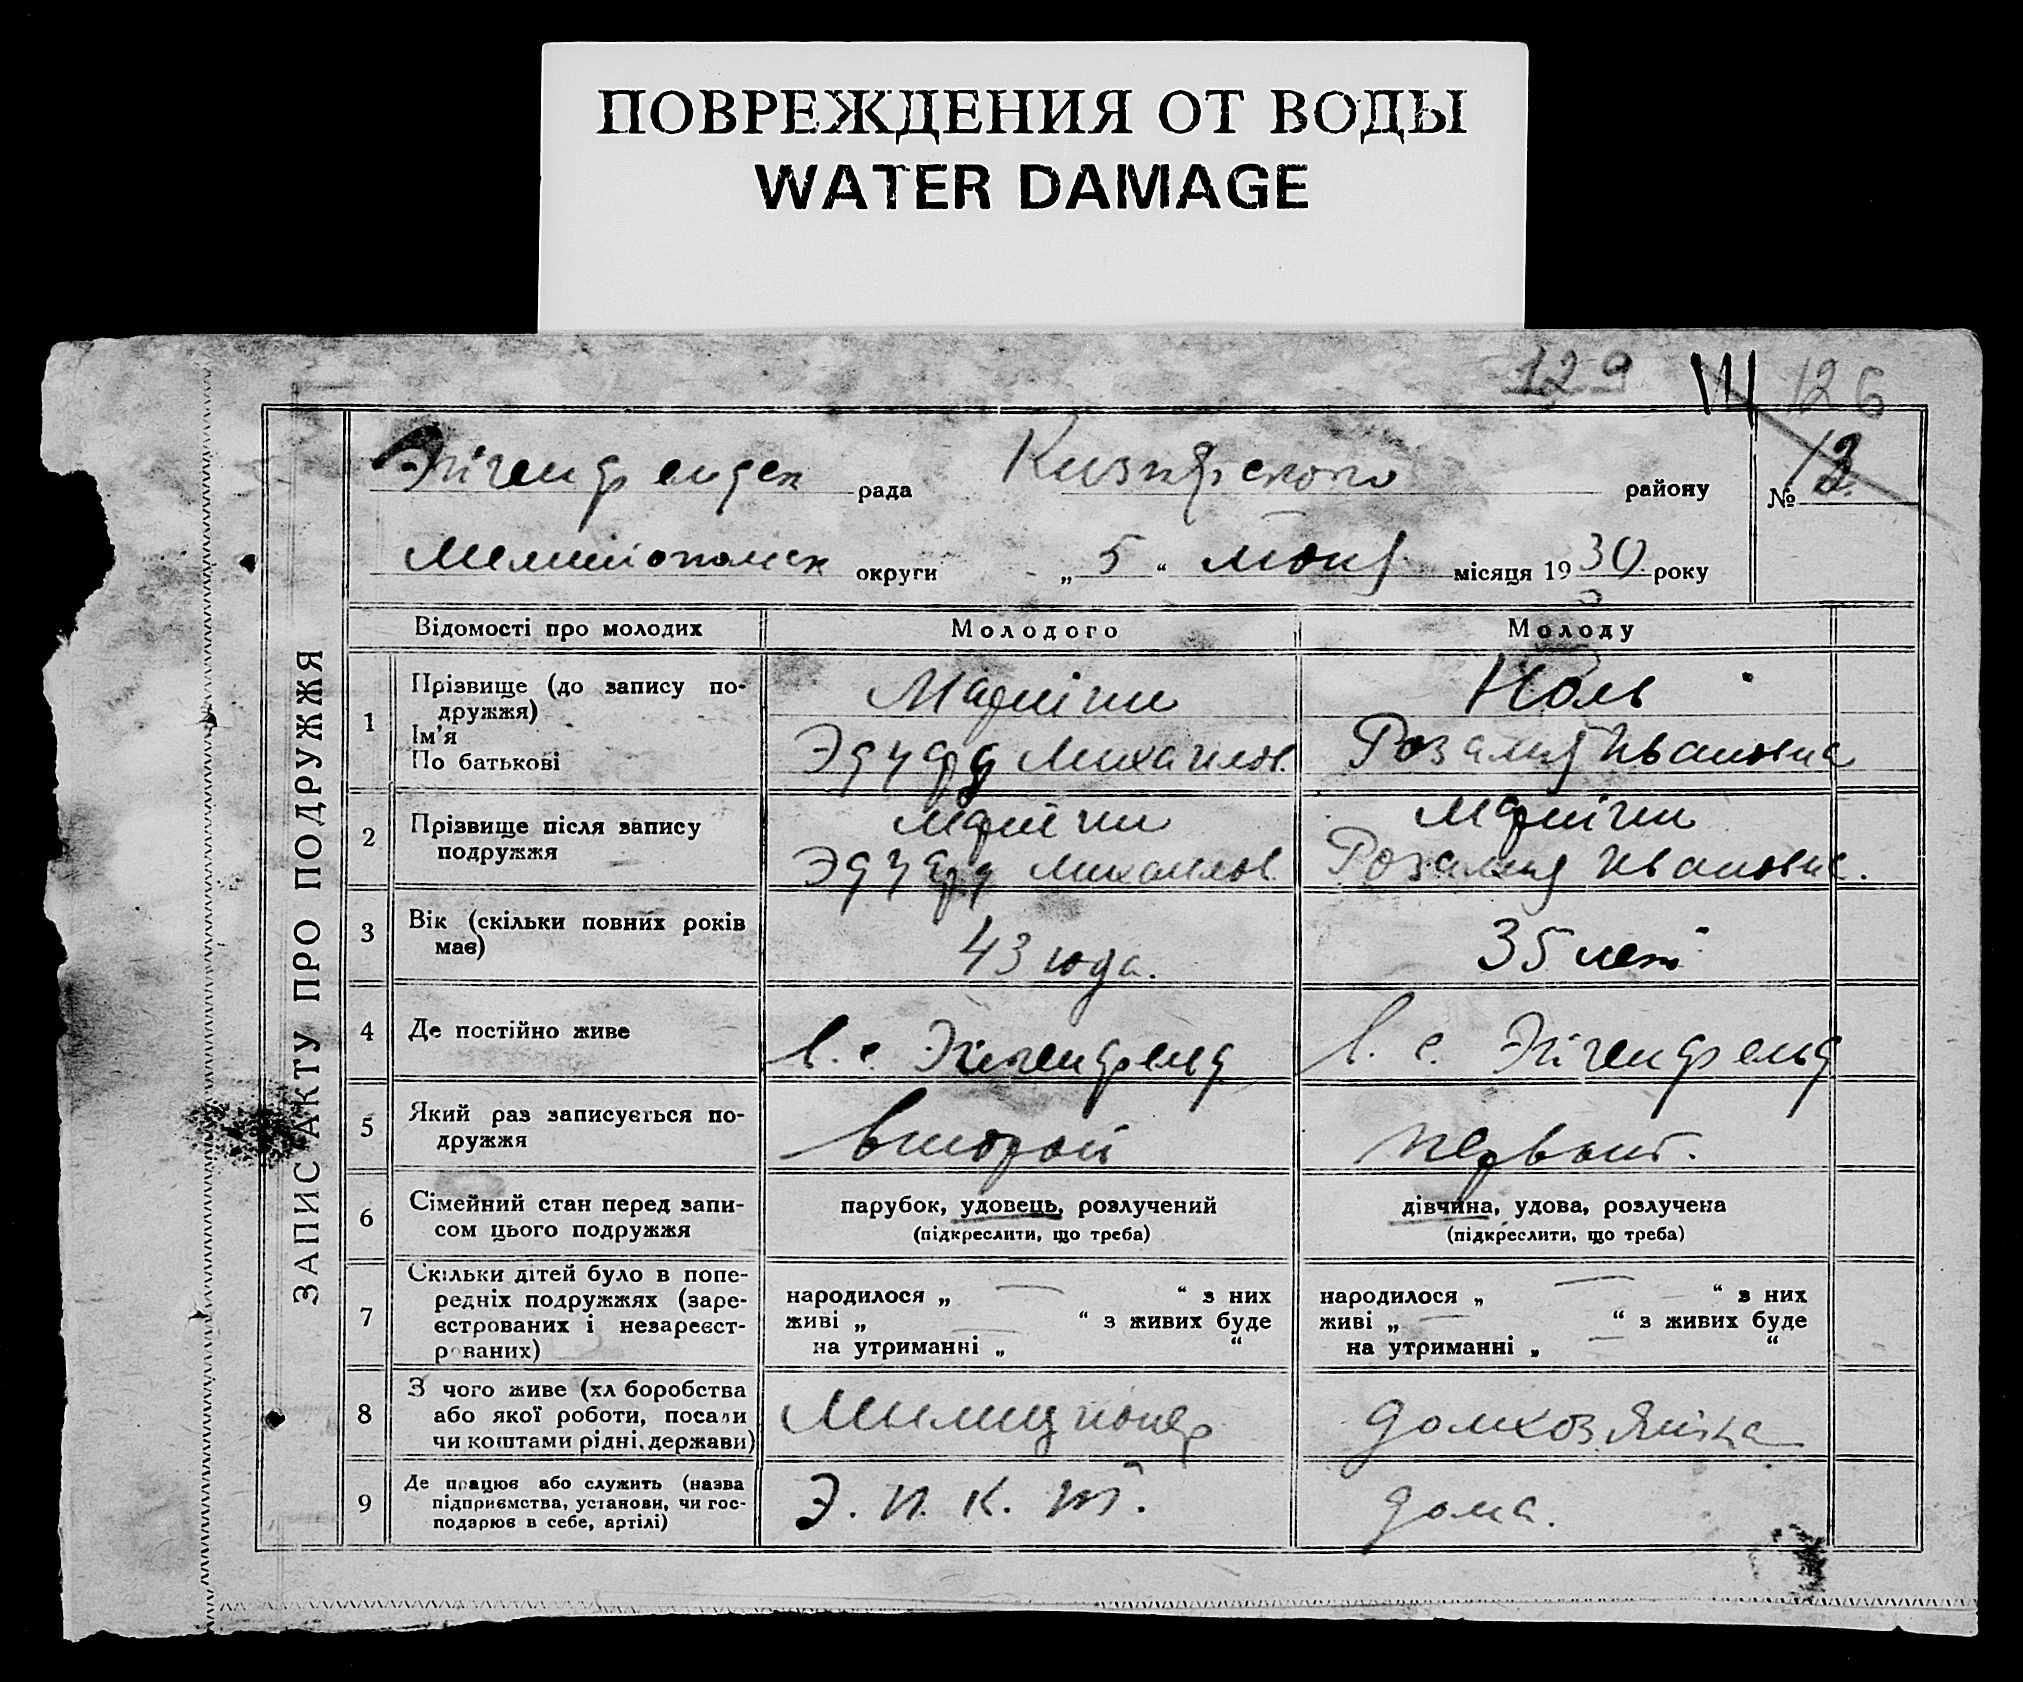 ПОВРЕЖДЕНИЯ ОТ ВОДЫ
WATER DAMAGE
129 126
рада району № 12
округи „ 5 “ месяця 1930 року
ЗАПИС АКТУ ПРО ПОДРУЖЖЯ
Відомості про молодих Молодого Молоду
1 Прізвище (до запису по-
дружжя)
Ім’я
По батькові
Ноль
Эдуард Михайлов. Розалия Ивановна
2 Прізвище після запису
подружжя
Эдуард Михайлов. Розалия Ивановна.
3 Вік (скільки повних років
має)
43 года. 35 лет
4 Де постійно живе
в. с. Эйгенфельд в. с. Эйгенфельд
5 Який раз записується по-
дружжя
второй первый.
6 Сімейний стан перед запи-
сом цього подружжя
парубок, удовець, розлучений дівчина, удова, розлучена
(підкреслити, що треба) (підкреслити, що треба)
7 Скільки дітей було в попе-
редніх подружжях (заре-
єстрованих і незареєст-
рованих)
народилося „ — “ з них народилося „ — “ з них
живі „ “ з живих буде живі „ — “ з живих буде
на утриманні „ — “ на утриманні „ — “
8 З чого живе (хл боробства
або якої роботи, посади
чи коштами рідні, держави)
Милиционер домхозяйка
9 Де працює або служить (назва
підприємства, установи, чи гос-
подарює в себе, артілі)
Э. П. К. Т. дома.